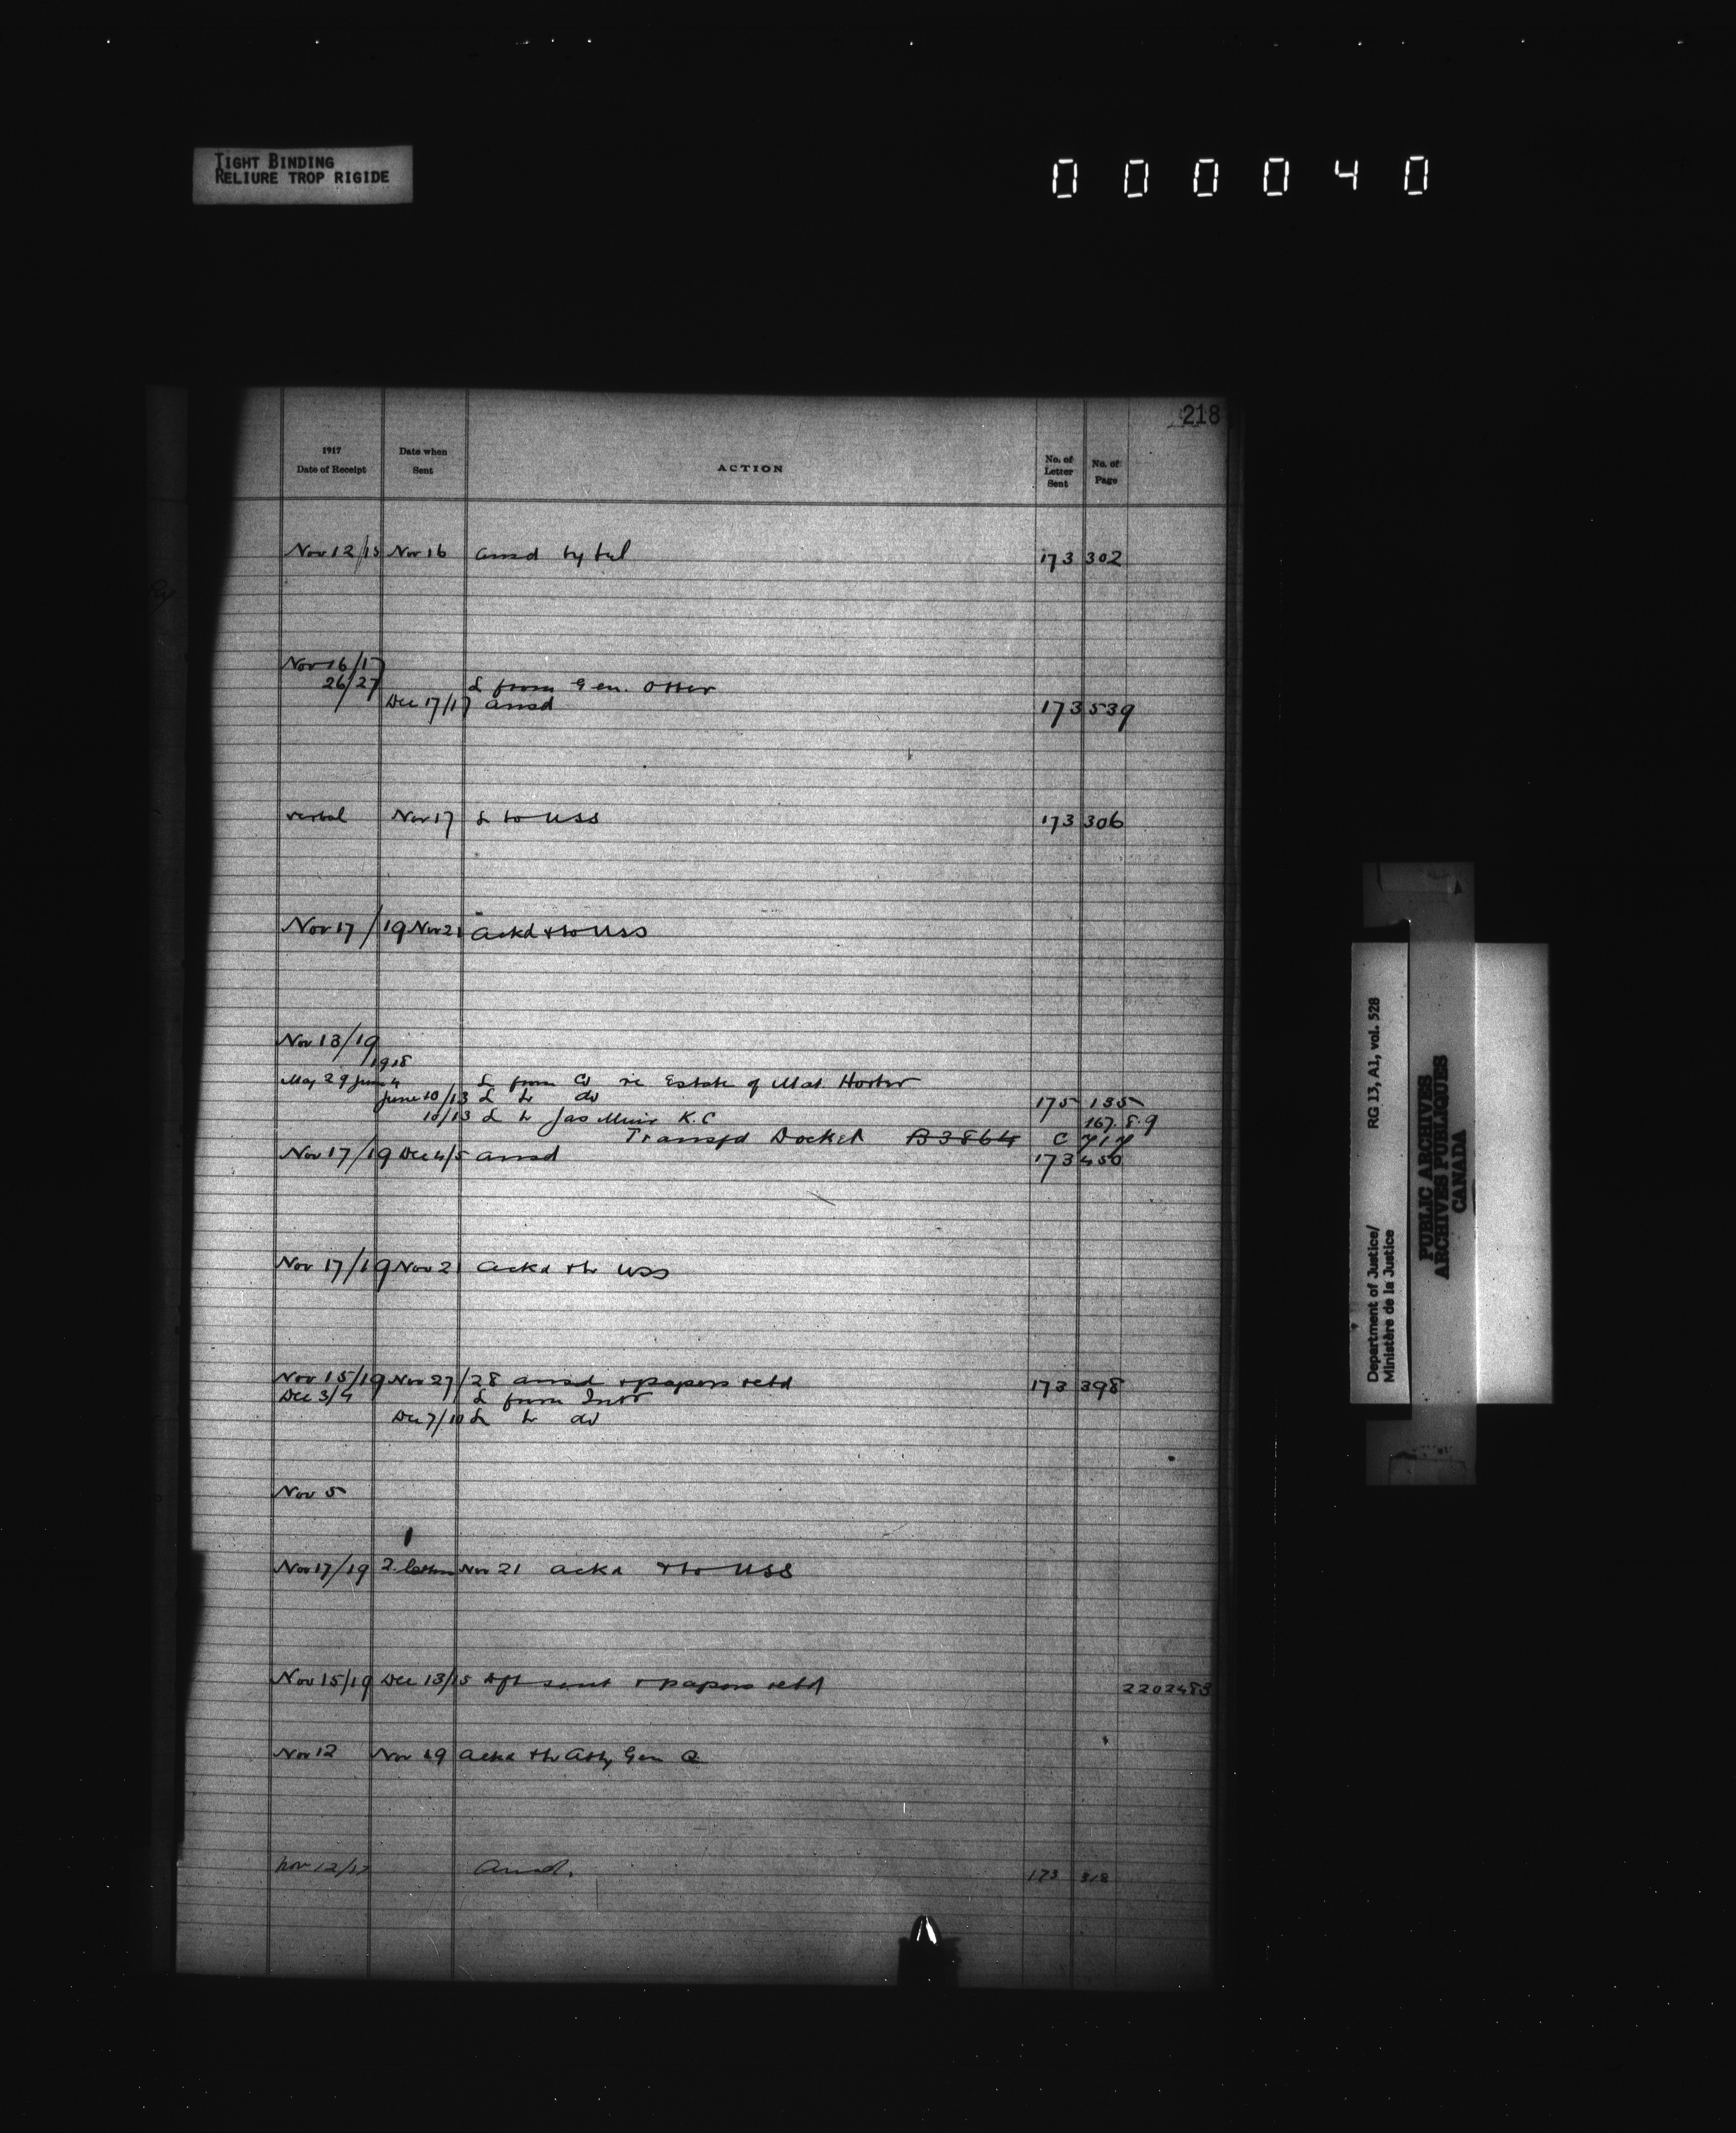 TIGHT BINDING
RELIURE TROP RIGIDE
000040
218
1917
Date of Receipt
Date when
Sent
ACTION
No. of
Letter
Sent
No. of
Page
Nov 12/15 Nov 16 ansd by tel 173 302
Nov 16/17
26/27 L from Gen. Otter
Dec 17/17 ansd 173 539
verbal Nov 17 L to USS 173 306
Nov 17/19 Nov 21 ackd & to USS
Nov 13/19
1918
May 29 June 4 L from re Estate of Mat
June 10/13 L to do 175 135
10/13 L to Jas Muir K.C 167.8.9
Transfd Docket B3864 C 717
Nov 17/19 Dec 4/5 ansd 173 450
Nov 17/19 Nov 21 ackd & to USS
Nov 15/19 Nov 27/28 ansd & papers retd 173 398
Dec 3/4 L from Intr
Dec 7/10 L to do
Nov 5
Nov 17/19 2 letters Nov 21 ackd & to USS
Nov 15/19 Dec 13/15 dft sent & papers retd 2202483
Nov 12 Nov 19 ackd & to Atty Gen Q
Nov 12/17 Ansd. 173 318
Department of Justice/ RG 13, A1, vol. 528
Ministère de la Justice
PUBLIC ARCHIVES
ARCHIVES PUBLIQUES
CANADA